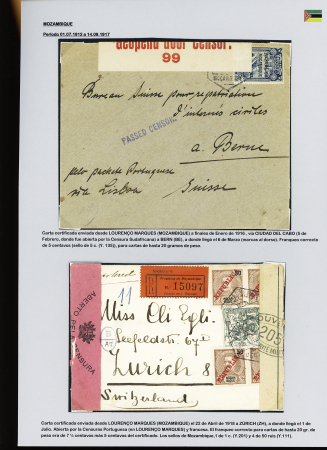 MOZAMBIQUE
Periodo 01.07.1913 a 14.09.1917
Geopend door Censor.
99
Bureau Suisse pour repatriation
d'internés civiles
PASSED CENSOR.
a. Berne
pelo pachete Portuguese
via Lisboa
Suisse
Carta certificada enviada desde LOURENÇO MARQUES (MOZAMBIQUE) a finales de Enero de 1916, via CIUDAD DEL CABO (5 de
Febrero, donde fue abierta por la Censura Sudafricana) a BERN (BE), a donde llegó el 6 de Marzo (marcas al dorso). Franqueo correcto
de 5 centavos (sello de 5 c. (Y. 135)), para cartas de hasta 20 gramos de peso.
ABERTO PELA CENSURA
11
15097
Miss Oli Egli.
Seefeldstr. 67
Zurich 8
Switzerland
205
Carta certificada enviada desde LOURENÇO MARQUES (MOZAMBIQUE) el 22 de Abril de 1918 a ZÜRICH (ZH), a donde llegó el 1 de
Julio. Abierta por la Censuras Portuguesa (en LOURENÇO MARQUES) y francesa. El franqueo correcto para cartas de hasta 20 gr. de
peso era de 7 ½ centavos más 5 centavos del certificado. Los sellos de Mozambique,1 de 1 c. (Y.201) y 4 de 50 reis (Y.111).